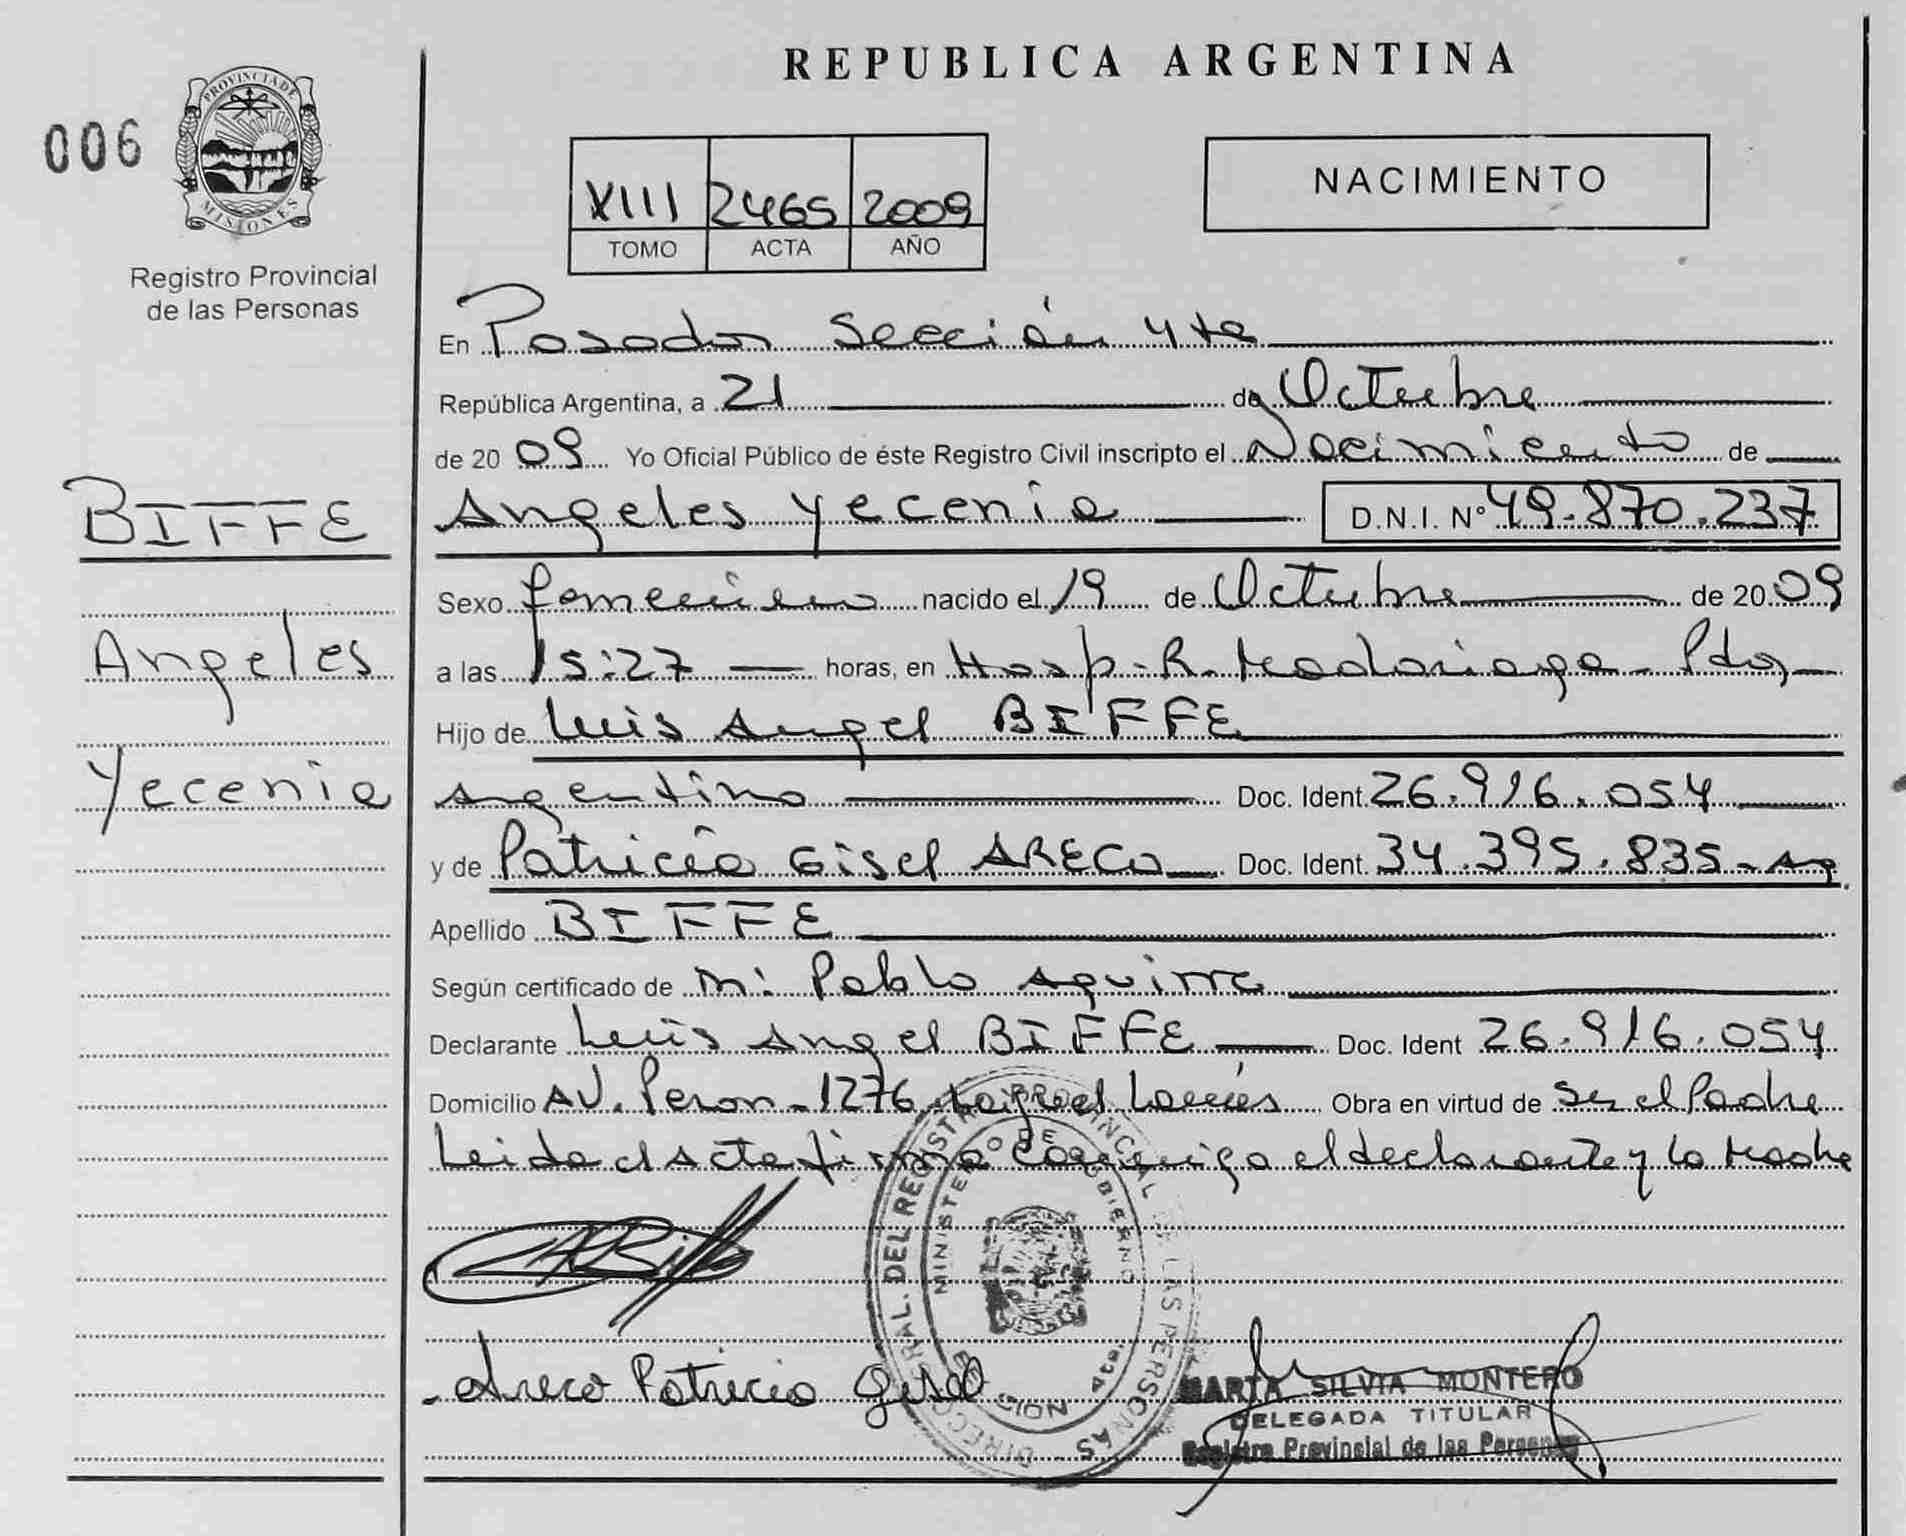 REPUBLICA ARGENTINA
006
PROVINCIA DE
MISIONES
Registro Provincial
de las Personas
XIII 2465 2009
TOMO ACTA AÑO
NACIMIENTO
En Posadas Sección 4ta
República Argentina, a 21 de Octubre
de 2009 Yo Oficial Público de éste Registro Civil inscripto el Nacimiento de
BIFFE
Angeles Yecenia D.N.I. Nº 49.870.237
Sexo femenino nacido el 19 de Octubre de 2009
Angeles
a las 15:27 horas, en Hosp. R. Madariaga - Pdas
Hijo de Luis Angel BIFFE
Yecenia
argentino Doc. Ident. 26.916.054
y de Patricia Gisel ARECO Doc. Ident. 34.395.835 - Arg
Apellido BIFFE
Según certificado de M: Pablo Aguirre
Declarante Luis Angel BIFFE Doc. Ident 26.916.054
Domicilio AV. Peron - 1276 Obra en virtud de Ser el Padre
Leida el Acta firma conmigo el declarante y la Madre
DIRECC GRAL. DEL REGISTRO PROVINCIAL DE LAS PERSONAS
MINISTERIO DE GOBIERNO
CION 4ta.
Areco Patricia Gisel
MARTA SILVIA MONTERO
DELEGADA TITULAR
Registro Provincial de las Personas